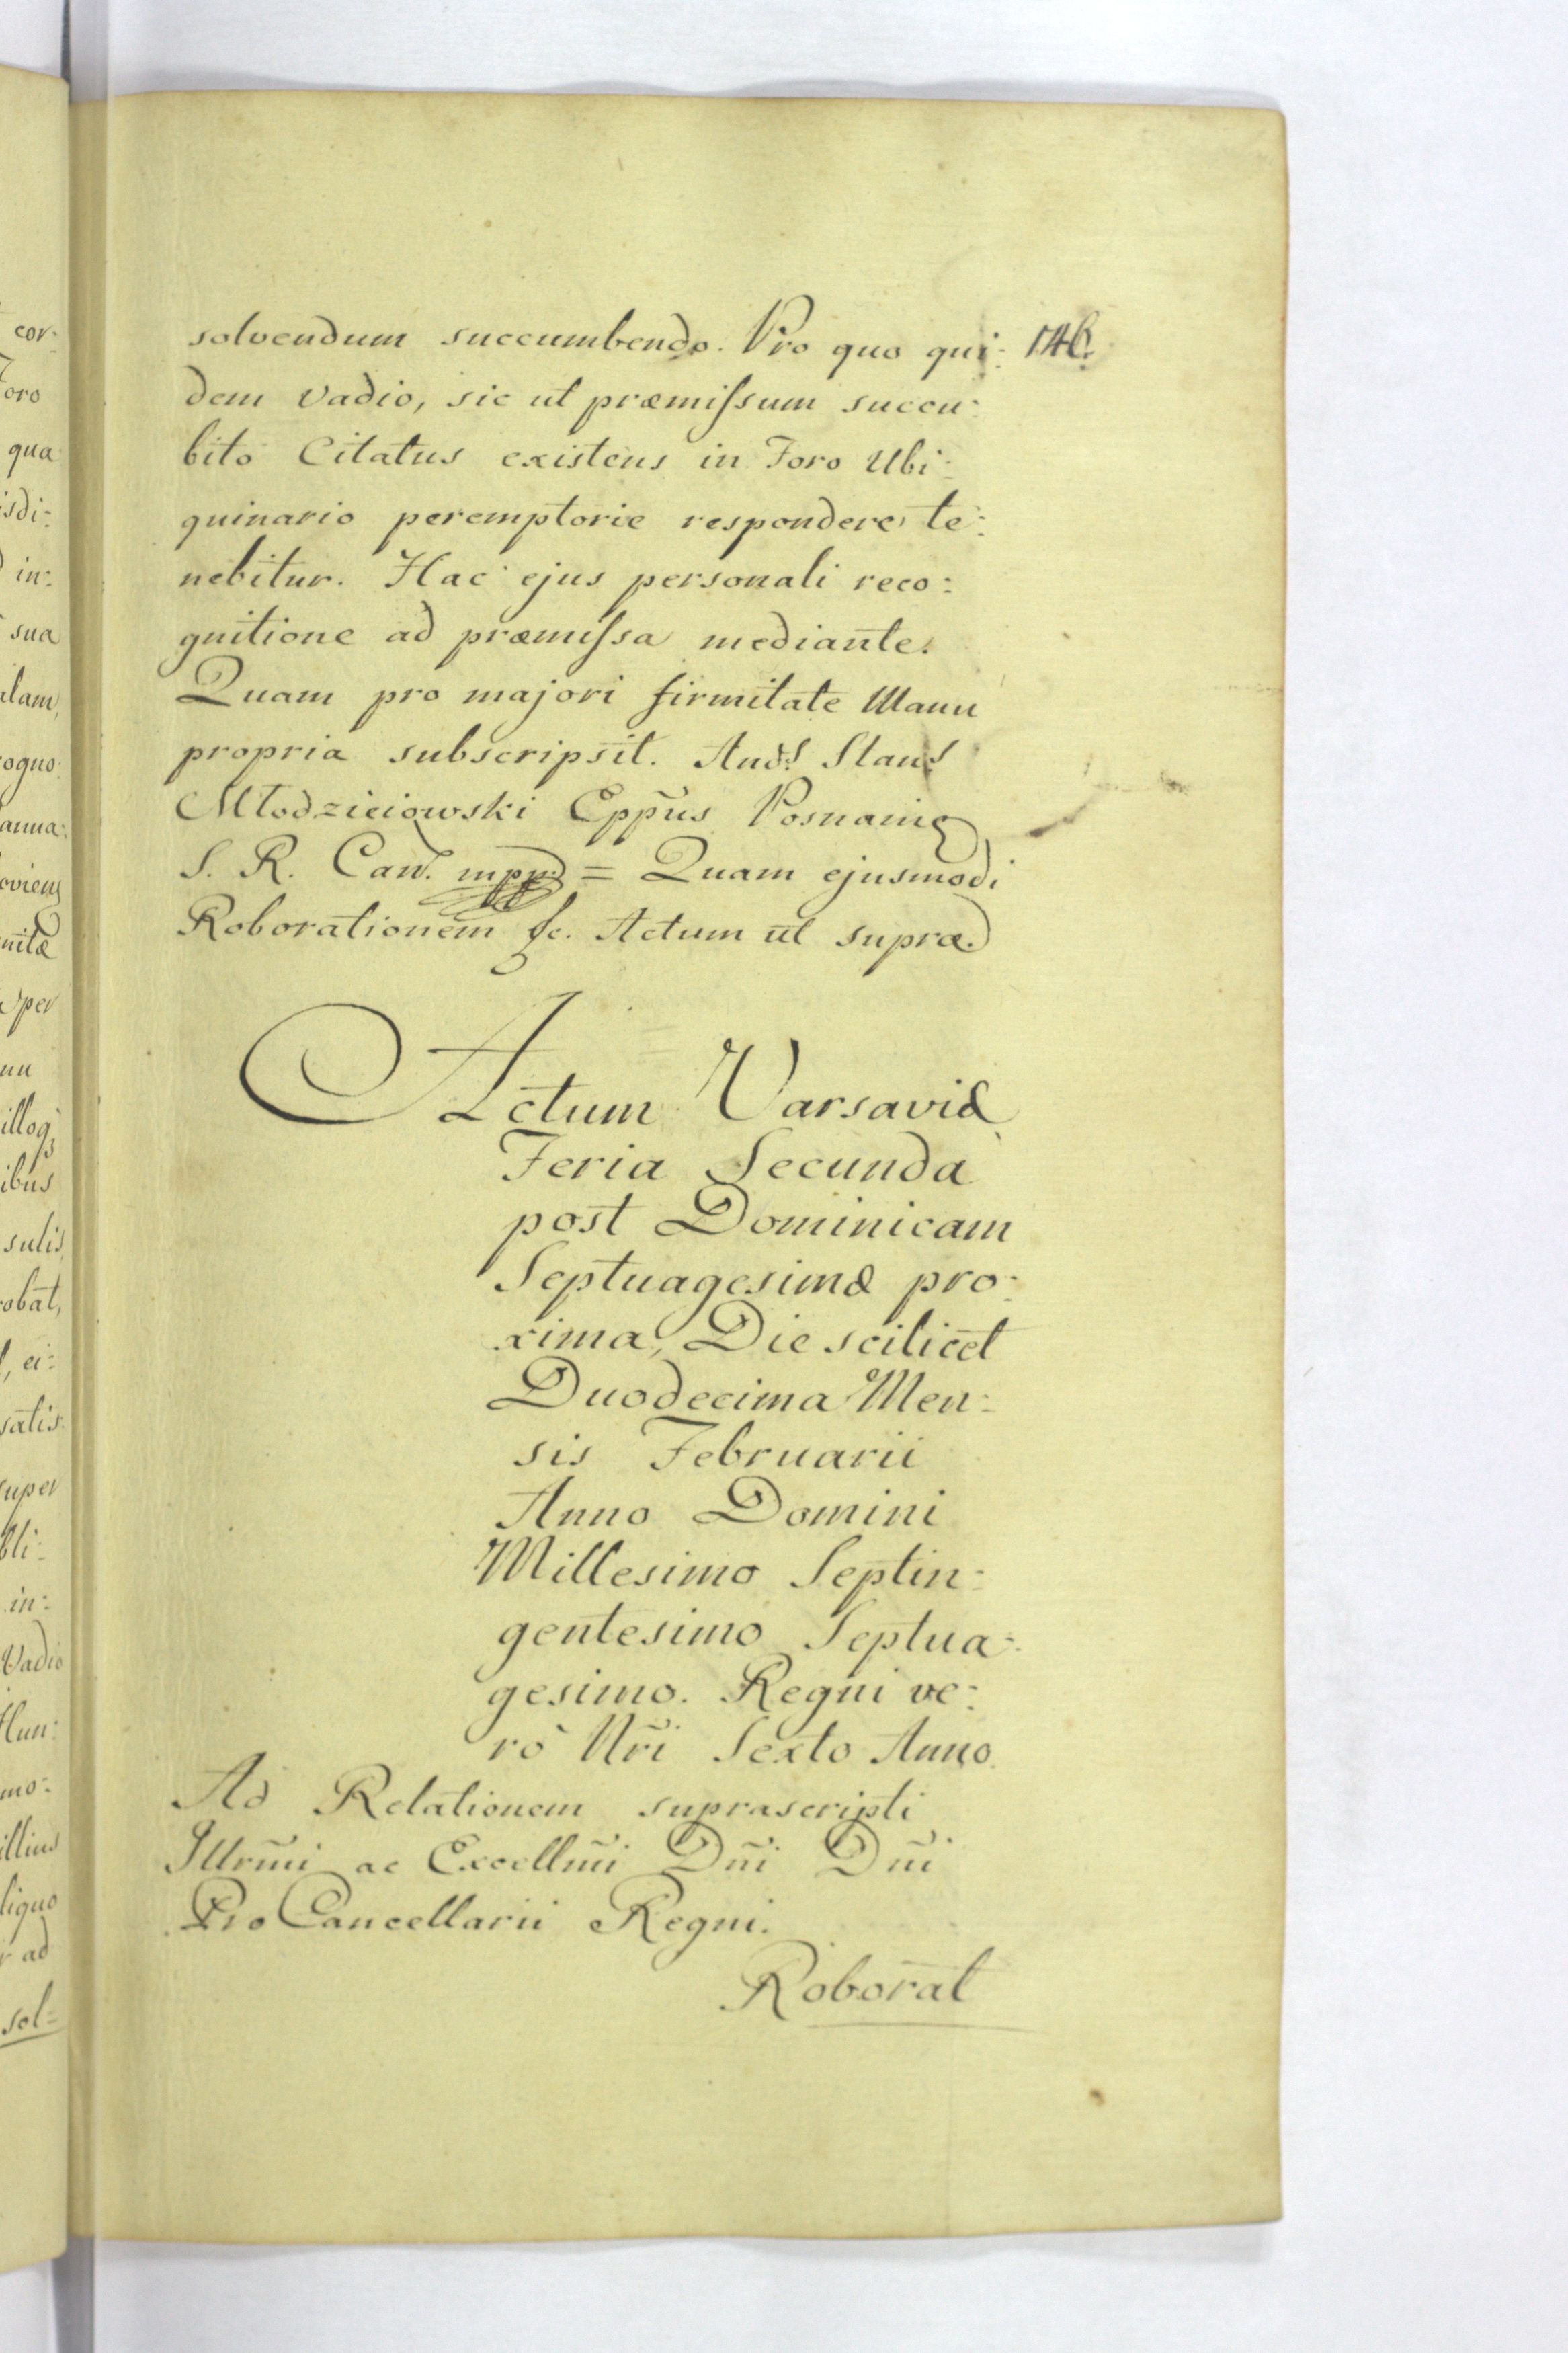 solvendum succumbendo. Pro quo qui:
dem Vadio, sic ut præmissum succu:
bito Citatus existens in Foro Ubi:
quinario peremptorie respondere te:
nebitur. Hac ejus personali reco:
gnitione ad præmissa mediante.
Quam pro majori firmitate Manu
propria subscripsit. Stan:
Młodzieiowski Epp̃us Posnaniẽ
S. R. Can. mpp. = Quam ejusmodi
Roborationem &c. Actum ut supra.
Actum Varsaviæ
Feria Secunda
post Dominicam
Septuagesimæ pro:
xima, Die scilicet
Duodecima Men:
sis Februarii
Anno Domini
Millesimo Septin:
gentesimo Septua:
gesimo. Regni ve:
rò Nr̃i Sexto Anno.
Ad Relationem suprascripti
Illrm̃i ac Excellm̃i Dñi Dñi
Pro Cancellarii Regni.
Roborat
cor:
Foro
qua
isdi:
in:
sua
alam,
ogno:
anna:
per
ibus
sulis,
obat,
ei:
satis
super
bli:
in:
Vadio
mo:
illius
liquo
ad
sol=